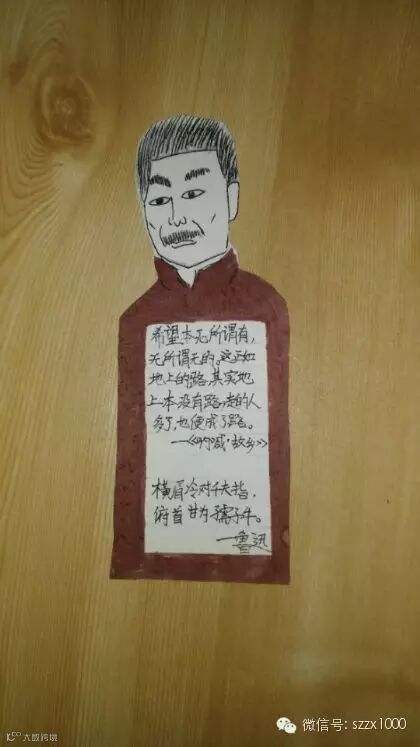 希望本无所谓有,
无所谓无的。这正如
地上的路,其实地
上本没有路,走的人
多了,也便成了路。
—《呐喊·故乡》
横眉冷对千夫指,
俯首甘为孺子牛。
—鲁迅
微信号: szzx1000
大数跨境